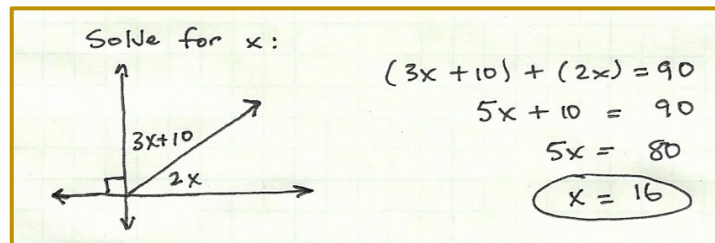 Solve for x:
3x+10
2x
(3x + 10) + (2x) = 90
5x + 10 = 90
5x = 80
x = 16